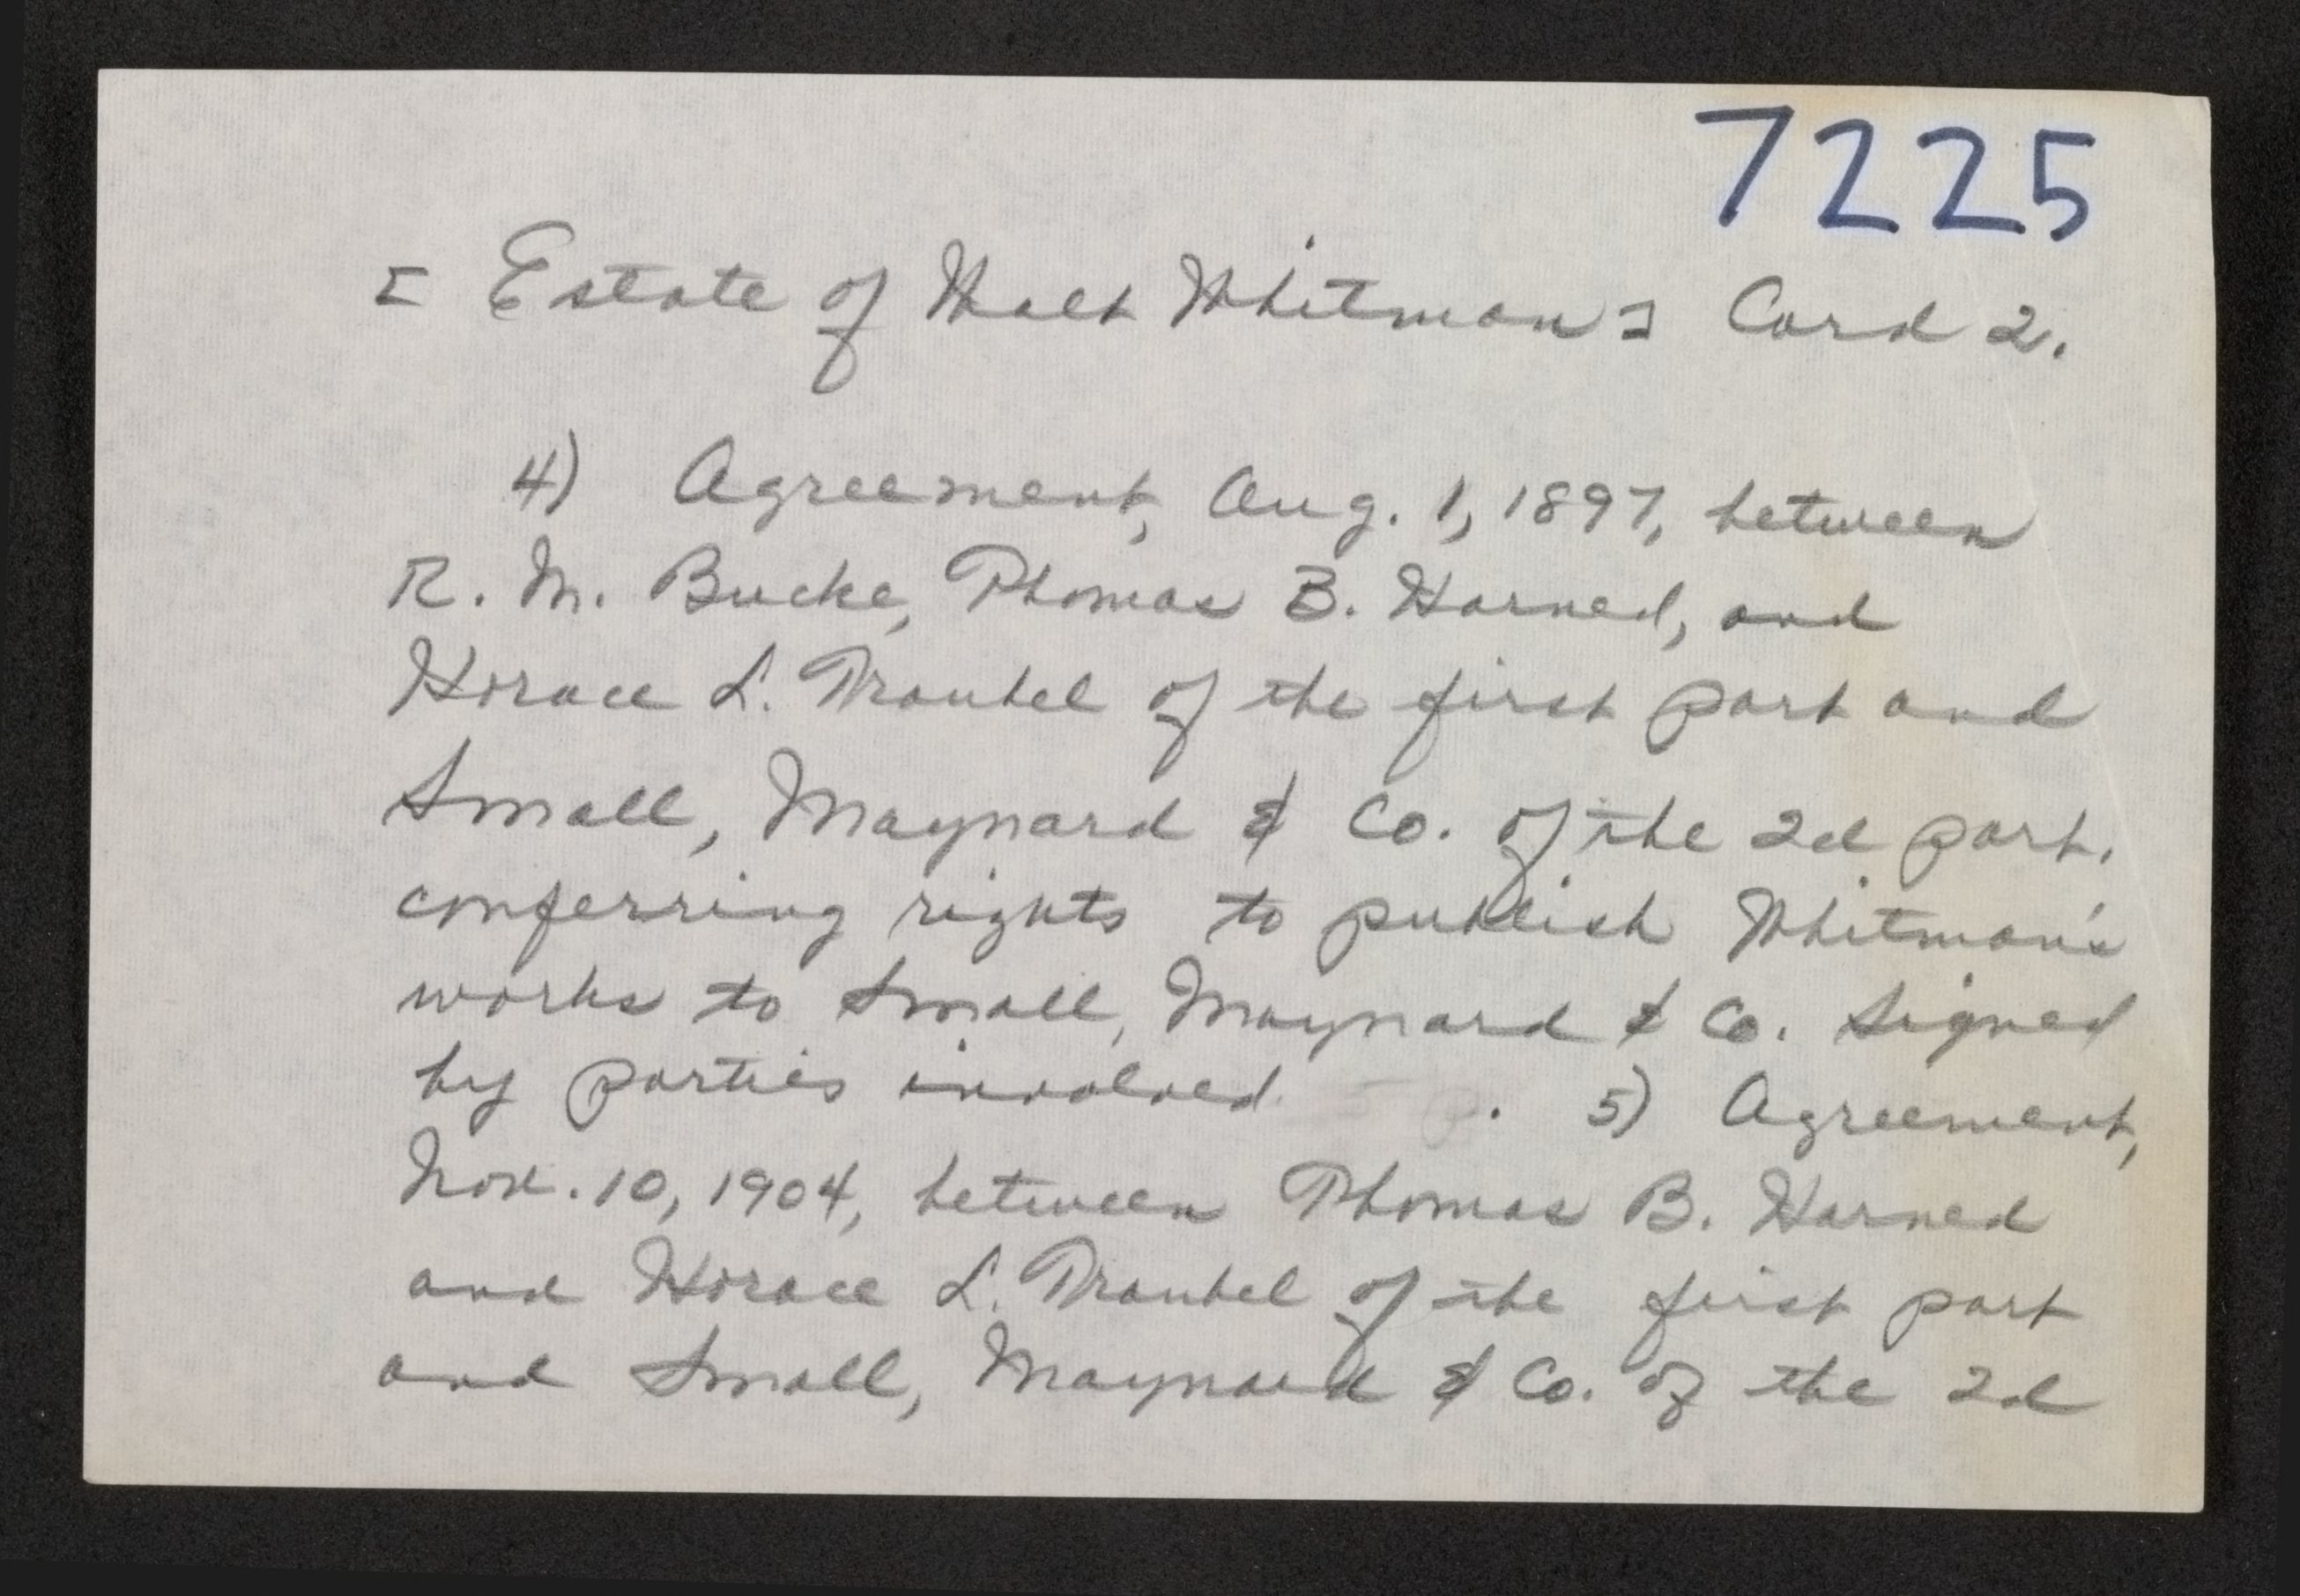 7225
[Estate of Walt Whitman] Card 2.
4) Agreement, Aug. 1, 1897, between
R. M. Bucke, Thomas B. Harned, and
Horace L. Traubel of the first part and
Small, Maynard & Co. of the 2d part.
conferring rights to publish Whitman's
works to Small, Maynard & Co. Signed
by parties involved. . 5) Agreement,
Nov. 10, 1904, between Thomas B. Harned
and Horace L. Traubel of the first part
and Small, Maynard & Co. of the 2d